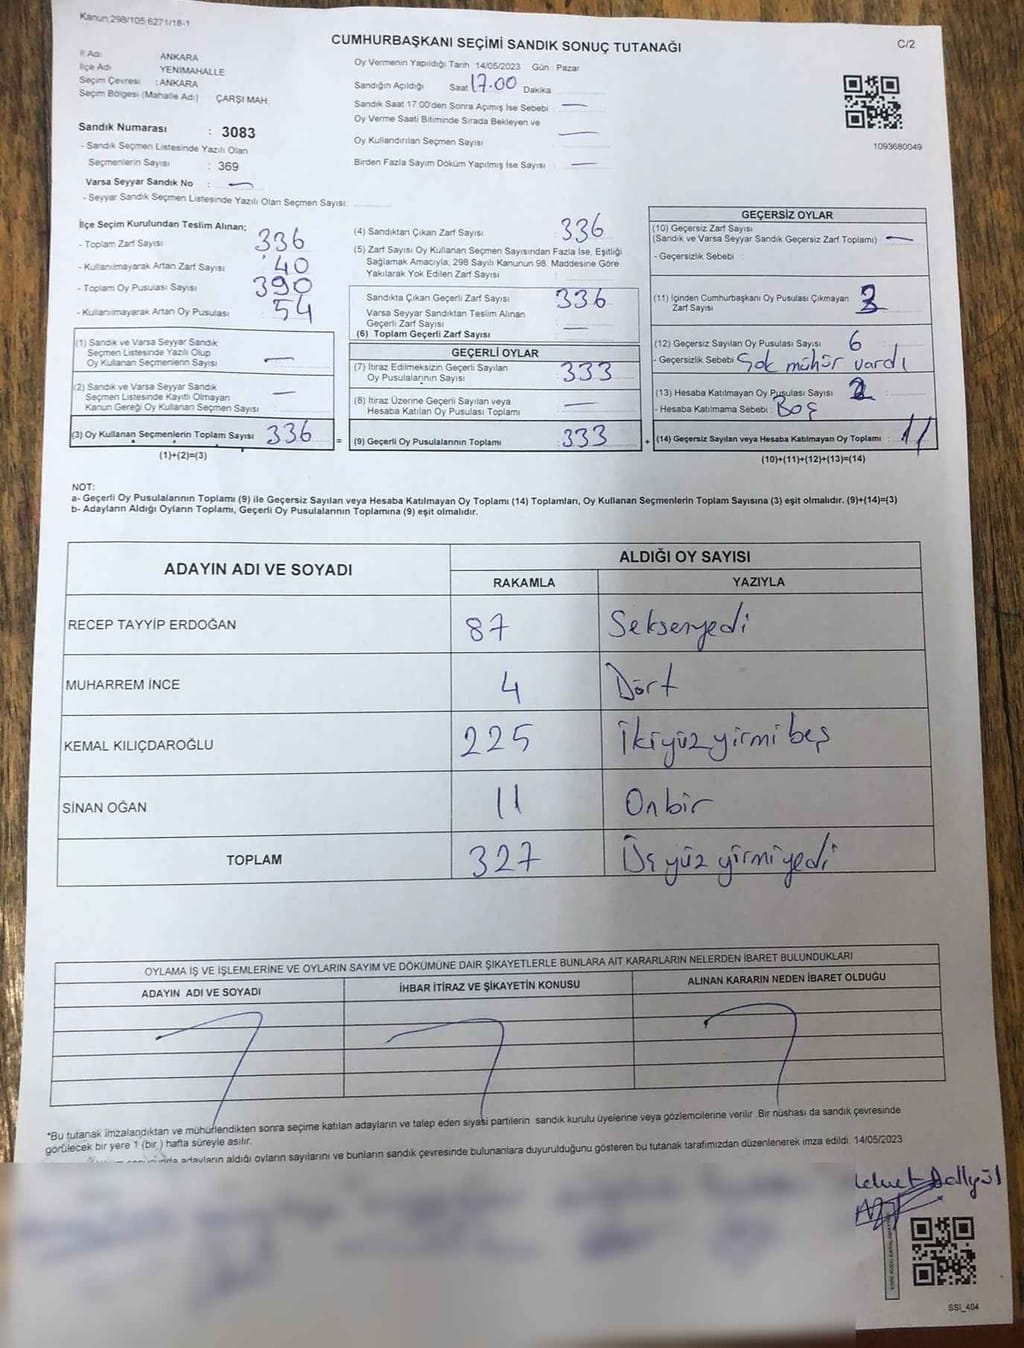 Kanun,298/105,6271/18-1
CUMHURBAŞKANI SEÇİMİ SANDIK SONUÇ TUTANAĞI
C/2
İl Adı ANKARA
İlçe Adı YENİMAHALLE
Seçim Çevresi : ANKARA
Seçim Bölgesi (Mahalle Adı) ÇARŞI MAH.
Oy Vermenin Yapıldığı Tarih 14/05/2023 Gün : Pazar
Sandığın Açıldığı Saat 17.00 Dakika
Sandık Saat 17:00'den Sonra Açımış İse Sebebi —
Oy Verme Saati Bitiminde Sırada Bekleyen ve
Oy Kullandırılan Seçmen Sayısı —
Birden Fazla Sayım Döküm Yapılmış İse Sayısı —
1093680049
Sandık Numarası : 3083
- Sandık Seçmen Listesinde Yazılı Olan
Seçmenlerin Sayısı : 369
Varsa Seyyar Sandık No : —
- Seyyar Sandık Seçmen Listesinde Yazılı Olan Seçmen Sayısı:
İlçe Seçim Kurulundan Teslim Alınan;
- Toplam Zarf Sayısı 336
- Kullanılmayarak Artan Zarf Sayısı 40
- Toplam Oy Pusulası Sayısı 390
- Kullanılmayarak Artan Oy Pusulası 54
(1) Sandık ve Varsa Seyyar Sandık
Seçmen Listesinde Yazılı Olup
Oy Kullanan Seçmenlerin Sayısı —
(2) Sandık ve Varsa Seyyar Sandık
Seçmen Listesinde Kayıtlı Olmayan
Kanun Gereği Oy Kullanan Seçmen Sayısı —
(3) Oy Kullanan Seçmenlerin Toplam Sayısı 336 =
(1)+(2)=(3)
(4) Sandıktan Çıkan Zarf Sayısı 336
(5) Zarf Sayısı Oy Kullanan Seçmen Sayısından Fazla İse, Eşitliği
Sağlamak Amacıyla, 298 Sayılı Kanunun 98. Maddesine Göre
Yakılarak Yok Edilen Zarf Sayısı
Sandıkta Çıkan Geçerli Zarf Sayısı 336
Varsa Seyyar Sandıktan Teslim Alınan
Geçerli Zarf Sayısı —
(6) Toplam Geçerli Zarf Sayısı
GEÇERLİ OYLAR
(7) İtiraz Edilmeksizin Geçerli Sayılan
Oy Pusulalarının Sayısı 333
(8) İtiraz Üzerine Geçerli Sayılan veya
Hesaba Katılan Oy Pusulası Toplamı —
(9) Geçerli Oy Pusulalarının Toplamı : 333 +
GEÇERSİZ OYLAR
(10) Geçersiz Zarf Sayısı
(Sandık ve Varsa Seyyar Sandık Geçersiz Zarf Toplamı) —
- Geçersizlik Sebebi :
(11) İçinden Cumhurbaşkanı Oy Pusulası Çıkmayan
Zarf Sayısı
(12) Geçersiz Sayılan Oy Pusulası Sayısı 6
- Geçersizlik Sebebi Çok mühür vardı
(13) Hesaba Katılmayan Oy Pusulası Sayısı
- Hesaba Katılmama Sebebi Boş
(14) Geçersiz Sayılan veya Hesaba Katılmayan Oy Toplamı : 11
(10)+(11)+(12)+(13)=(14)
NOT:
a- Geçerli Oy Pusulalarının Toplamı (9) ile Geçersiz Sayılan veya Hesaba Katılmayan Oy Toplamı (14) Toplamları, Oy Kullanan Seçmenlerin Toplam Sayısına (3) eşit olmalıdır. (9)+(14)=(3)
b- Adayların Aldığı Oyların Toplamı, Geçerli Oy Pusulalarının Toplamına (9) eşit olmalıdır.
ADAYIN ADI VE SOYADI ALDIĞI OY SAYISI
RAKAMLA YAZIYLA
RECEP TAYYİP ERDOĞAN 87 Seksenyedi
MUHARREM İNCE 4 Dört
KEMAL KILIÇDAROĞLU 225 İkiyüzyirmibeş
SİNAN OĞAN 11 Onbir
TOPLAM 327 Üçyüzyirmiyedi
OYLAMA İŞ VE İŞLEMLERİNE VE OYLARIN SAYIM VE DÖKÜMÜNE DAİR ŞİKAYETLERLE BUNLARA AİT KARARLARIN NELERDEN İBARET BULUNDUKLARI
ADAYIN ADI VE SOYADI İHBAR İTİRAZ VE ŞİKAYETİN KONUSU ALINAN KARARIN NEDEN İBARET OLDUĞU
*Bu tutanak imzalandıktan ve mühürlendikten sonra seçime katılan adayların ve talep eden siyasi partilerin sandık kurulu üyelerine veya gözlemcilerine verilir. Bir nüshası da sandık çevresinde
görülecek bir yere 1 (bir ) hafta süreyle asılır.
adayların aldığı oyların sayılarını ve bunların sandık çevresinde bulunanlara duyurulduğunu gösteren bu tutanak tarafımızdan düzenlenerek imza edildi. 14/05/2023
SSI_404